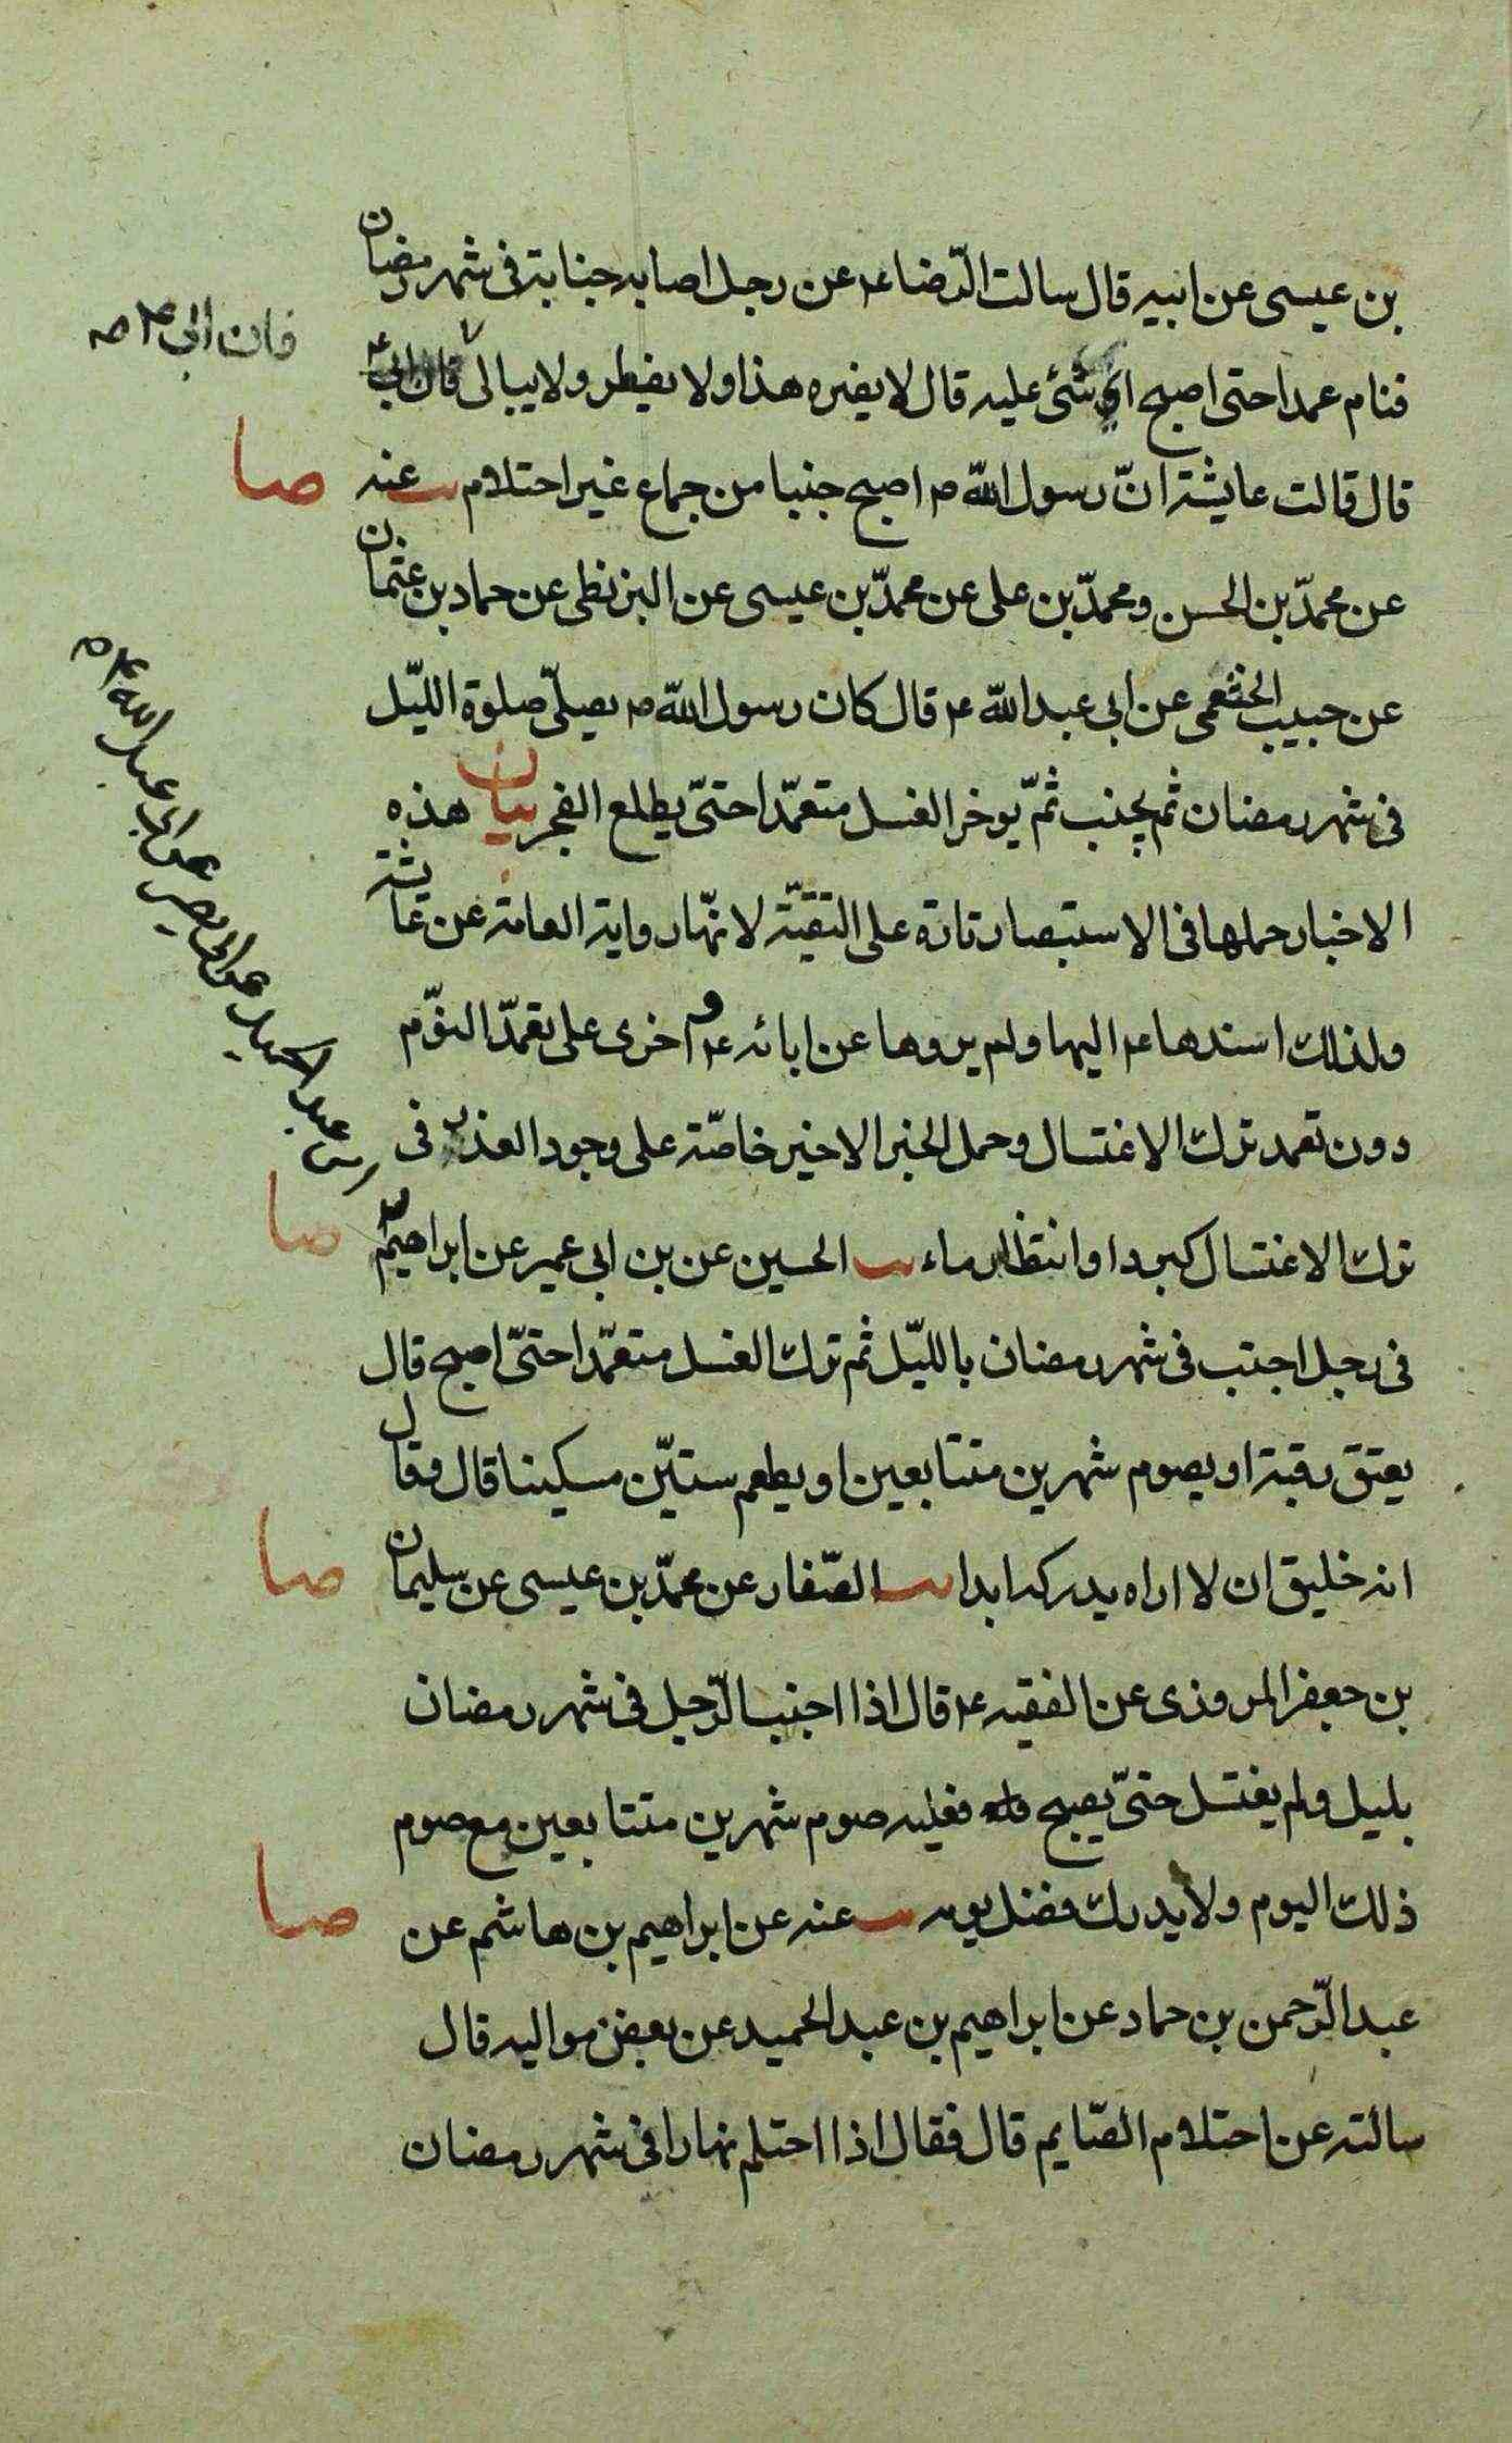 بن عيسى عن ابيه قال سالت الرّضا ع عن رجل اصابه جنابة فى شهر رمضان
فنام عمدا حتى اصبح اى شئ عليه قال لا يضره هذا ولا يفطر ولا يبالى فان ابى ع
فان ابى ع ص
قال قالت عايشة انّ رسول اللّه ص اصبح جنبا من جماع غير احتلام يب عنه
صا
عن محمّد بن الحسن و محمّد بن على عن محمّد بن عيسى عن البزنطى عن حماد بن عثمان
عن حبيب الخثعمى عن ابى عبد اللّه ع قال كان رسول اللّه ص يصلّى صلوة اللّيل
فى شهر رمضان ثم يجنب ثمّ يوخر الغسل متعمّدا حتىّ يطلع الفجر بيان هذه
الاخبار حملها فى الاستبصار تارة على التقيّة لانّها رواية العامة عن عايشة
ولذلك اسندها ع اليها ولم يروها عن ابائه ع و اخرى على تعمّد النوّم
دون تعمد ترك الاغتسال وحمل الخبر الاخير خاصّة على وجود العذر فى
ترك الاغتسال كبرد او انتظار ماء يب الحسين عن بن ابى عمير عن ابراهيم
صا
بن عبد الحميد عن ابى بصير عن ابى عبد الله ع ص
فى رجل اجنب فى شهر رمضان باللّيل ثم ترك الغسل متعمّدا حتىّ اصبح قال
يعتق رقبة او يصوم شهرين متتابعين او يطعم ستيّن مسكينا قال وقال
انه خليق ان لا اراه يدركه ابدا يب الصّفار عن محمّد بن عيسى عن سليمان
صا
بن جعفر المروذى عن الفقيه ع قال اذا اجنب الرّجل فى شهر رمضان
بليل ولم يغتسل حتىّ يصبح فعليه صوم شهرين متتابعين مع صوم
ذلك اليوم ولا يدرك فضل يومه يب عنه عن ابراهيم بن هاشم عن
صا
عبد الرّحمن بن حماد عن ابراهيم بن عبد الحميد عن بعض مواليه قال
سالته عن احتلام الصّايم قال فقال اذا احتلم نهارا فى شهر رمضان